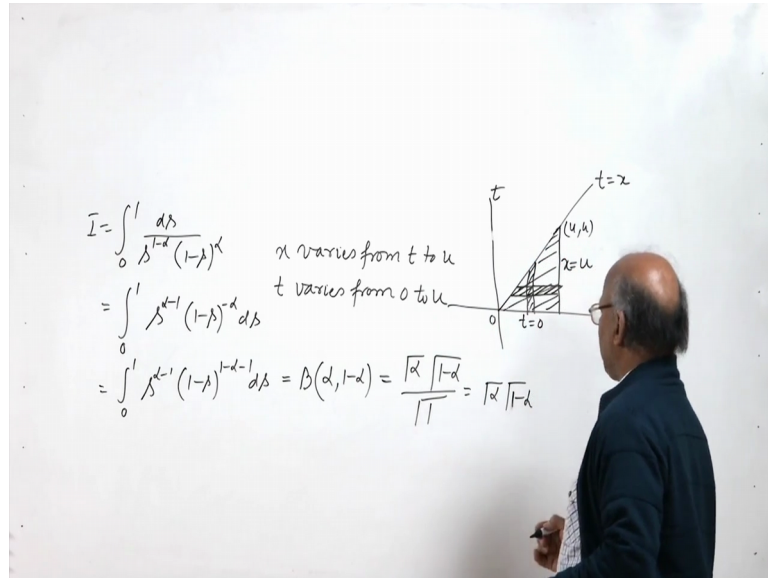 I = ∫₀¹ ds / s^{1-α} (1-s)^α
= ∫₀¹ s^{α-1} (1-s)^{-α} ds
= ∫₀¹ s^{α-1} (1-s)^{1-α-1} ds = B(α, 1-α) = Γα Γ1-α / Γ1 = Γα Γ1-α
x varies from t to u
t varies from 0 to u
t
t=x
(u,u)
x=u
0
t=0